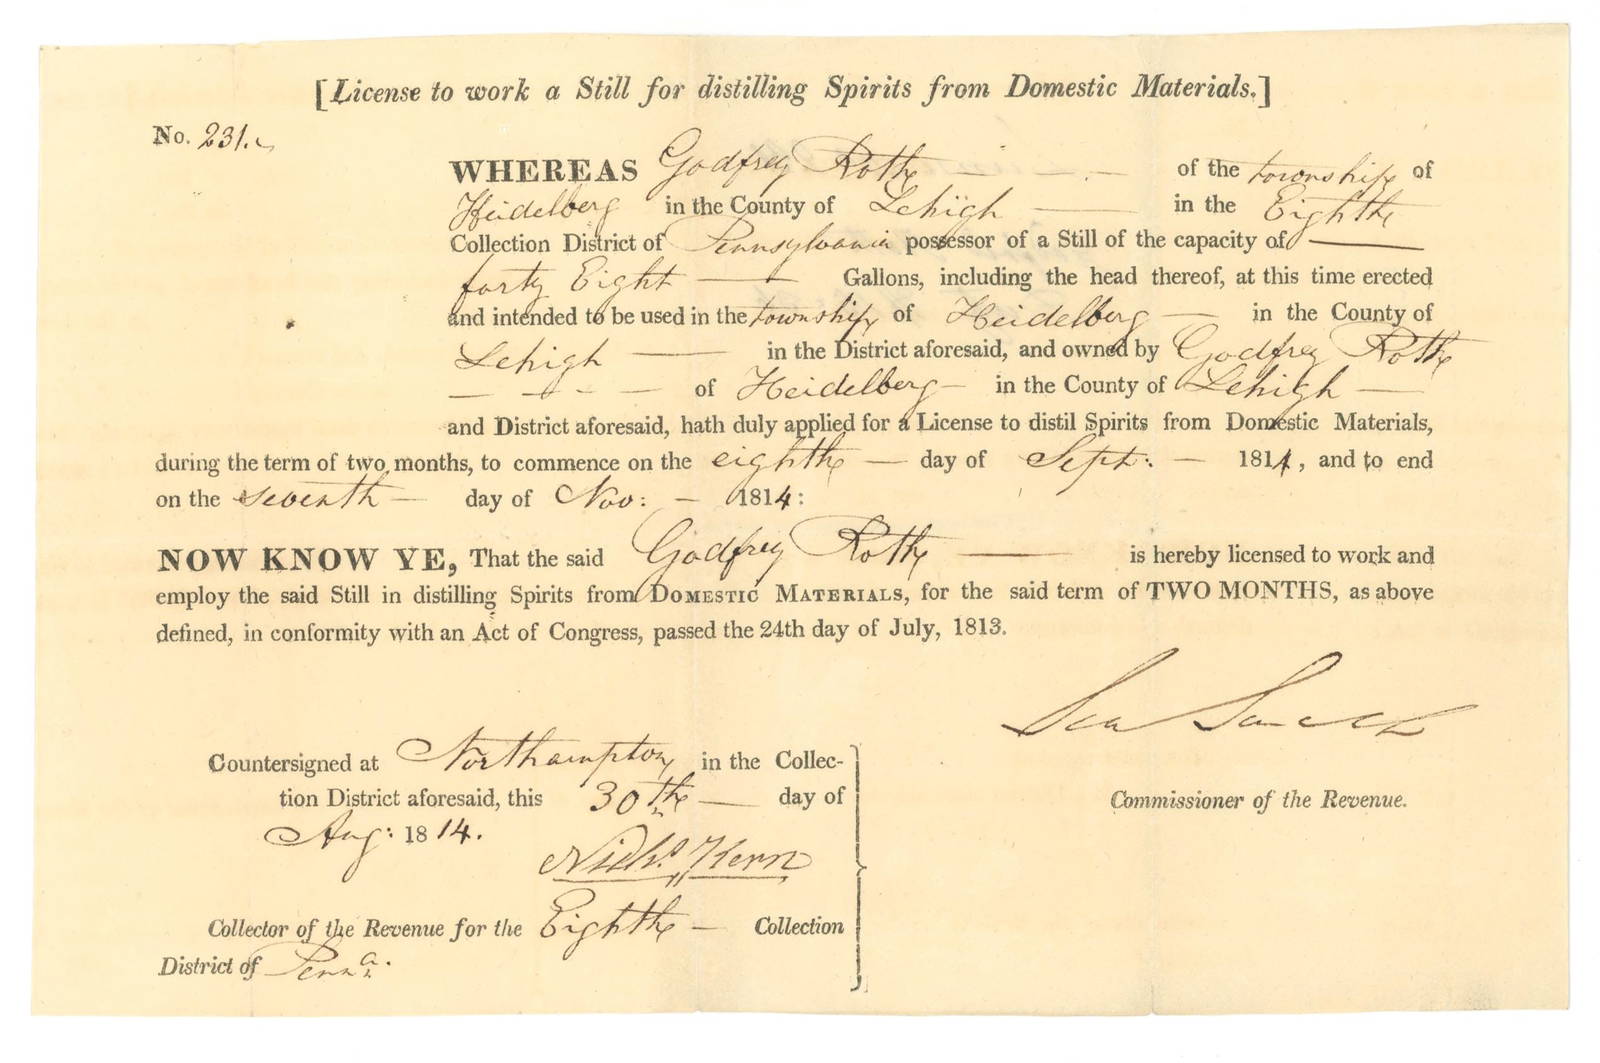 [License to work a Still for distilling Spirits from Domestic Materials.]
No. 231.
WHEREAS Godfrey Rothe of the township of
Heidelberg in the County of Lehigh in the Eighth
Collection District of Pennsylvania possessor of a Still of the capacity of
forty Eight Gallons, including the head thereof, at this time erected
and intended to be used in the township of Heidelberg in the County of
Lehigh in the District aforesaid, and owned by Godfrey Rothe
of Heidelberg in the County of Lehigh
and District aforesaid, hath duly applied for a License to distil Spirits from Domestic Materials,
during the term of two months, to commence on the eighth day of Sept: 1814, and to end
on the seventh day of Nov: 1814:
NOW KNOW YE, That the said Godfrey Rothe is hereby licensed to work and
employ the said Still in distilling Spirits from DOMESTIC MATERIALS, for the said term of TWO MONTHS, as above
defined, in conformity with an Act of Congress, passed the 24th day of July, 1813.
Countersigned at Northampton in the Collec-
tion District aforesaid, this 30th day of
Aug: 1814.
Nichs. Kern
Collector of the Revenue for the Eighth Collection
District of Penna.
Commissioner of the Revenue.